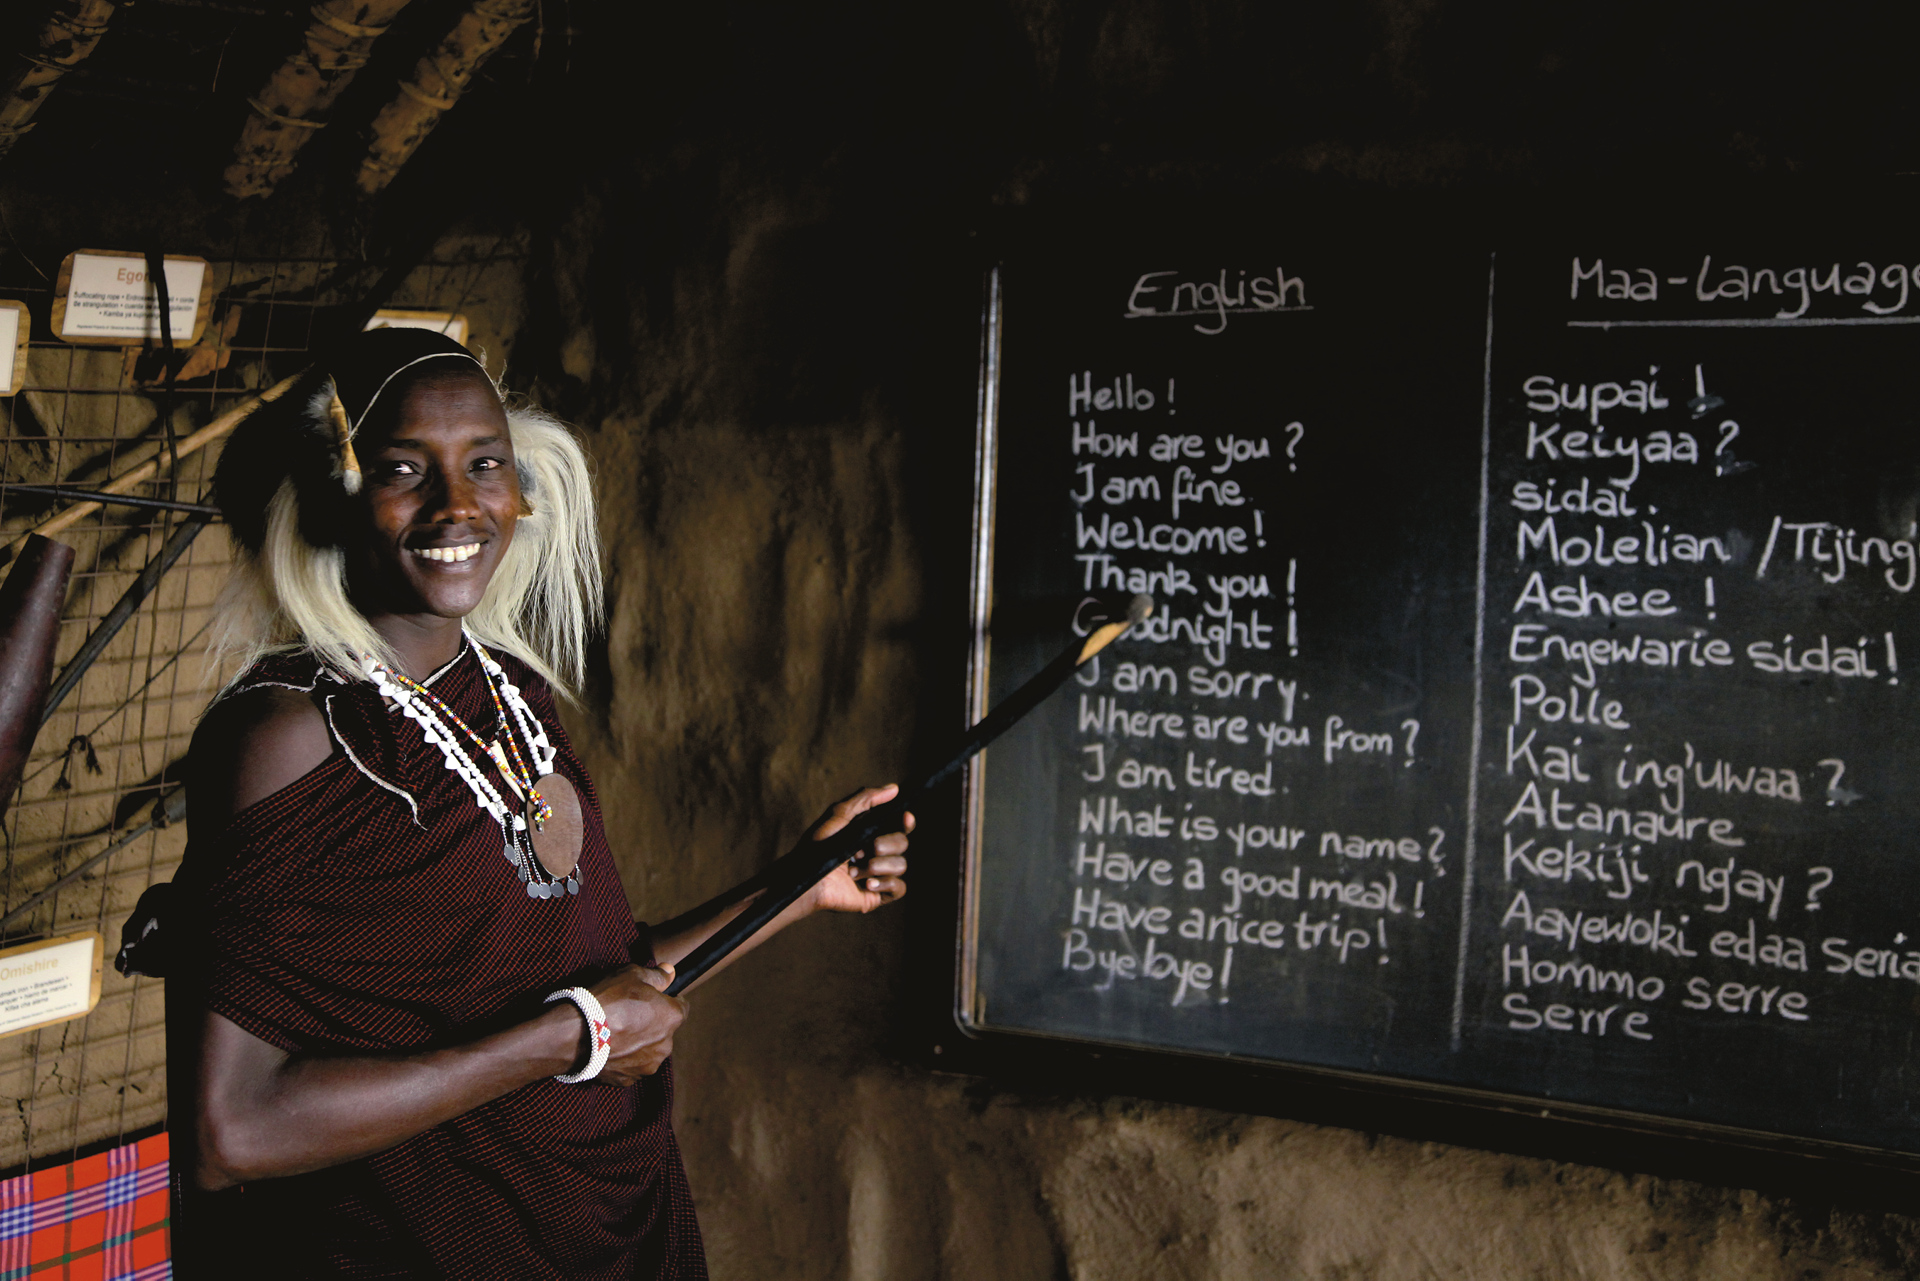 English
Hello!
How are you?
I am fine.
Welcome!
Thank you!
Goodnight!
I am sorry.
Where are you from?
I am tired.
What is your name?
Have a good meal!
Have a nice trip!
Bye bye!
Maa-Language
Supai!
Keiyaa?
sidai.
Molelian /Tijing'
Ashee!
Engewarie sidai!
Polle
Kai ing'uwaa?
Atanaure
Kekiji ng'ay?
Aayewoki edaa Seria
Hommo serre
Serre
Suffocating rope •
de strangulation •
• Kamba ya
Omishire